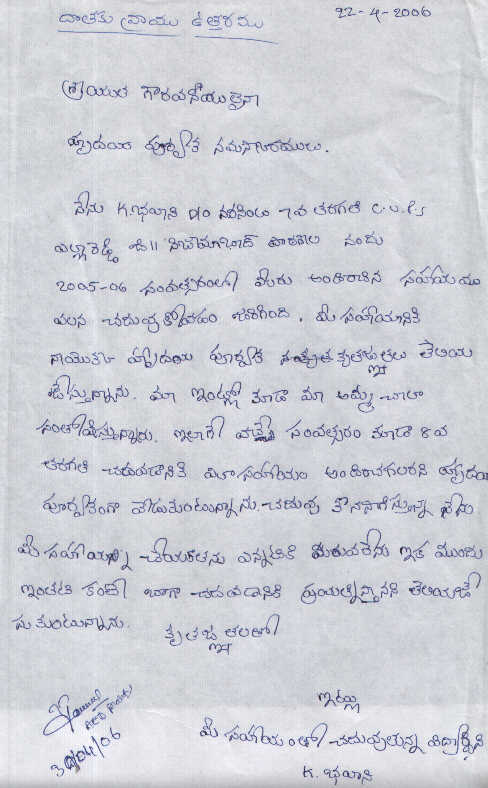 దాతకు వ్రాయు ఉత్తరము 22-4-2006
శ్రీయుత గౌరవనీయులైన
హృదయ పూర్వక నమస్కారములు.
నేను K. భవాని D/O నరసింలు 7వ తరగతి C.U.P.S
ఎల్లారెడ్డి జి॥ నిజామాబాద్ పాఠశాల నందు
2005-06 సంవత్సరంలో మీరు అందించిన సహాయము
వలన చదువుకోవడం జరిగింది. మీ సహాయానికి
నాయొక్క హృదయ పూర్వక కృతజ్ఞతలు తెలియ
చేస్తున్నాను. మా ఇంట్లో కూడా మా అమ్మ చాలా
సంతోషిస్తున్నారు. ఇలాగే వచ్చే సంవత్సరం కూడా 8వ
తరగతి చదువడానికి మీ సహాయం అందించగలరని హృదయ
పూర్వకంగా వేడుకుంటున్నాను. చదువు కొనసాగిస్తున్న నేను
మీ సహాయాన్ని చేయూతను ఎన్నటికి మరువలేను ఇక ముందు
ఇంతకి కంటే బాగా చదవడానికి ప్రయత్నిస్తానని తెలియజే
సుకుంటున్నాను.
కృతజ్ఞతలతో
ఇట్లు
మీ సహాయంతో చదువుతున్న విద్యార్థిని
K. భవాని
30/04/06